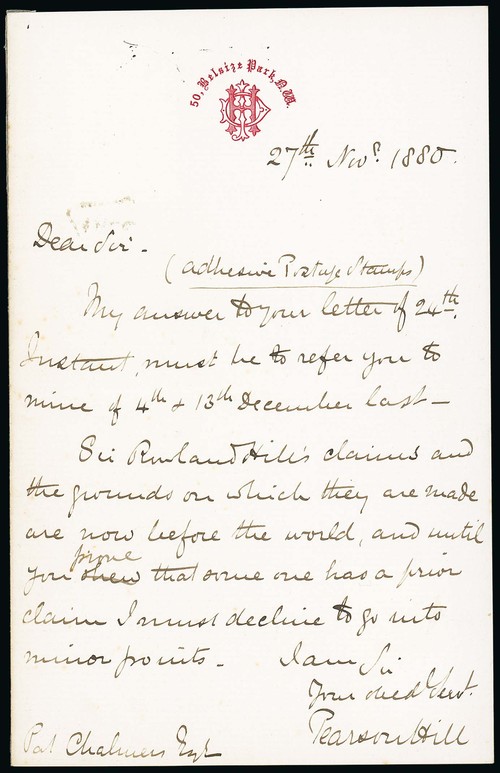 50, Belsize Park, N.W.
27th Novr. 1880.
Dear Sir -
(adhesive Postage Stamps)
My answer to your letter of 24th.
Instant, must be to refer you to
mine of 4th & 13th December last -
Sir Rowland Hill's claims and
the grounds on which they are made
are now before the world, and until
prove
you shew that some one has a prior
claim I must decline to go into
minor points - I am Sir
Your obedt Servt.
Pearson Hill
Pat Chalmers Esq